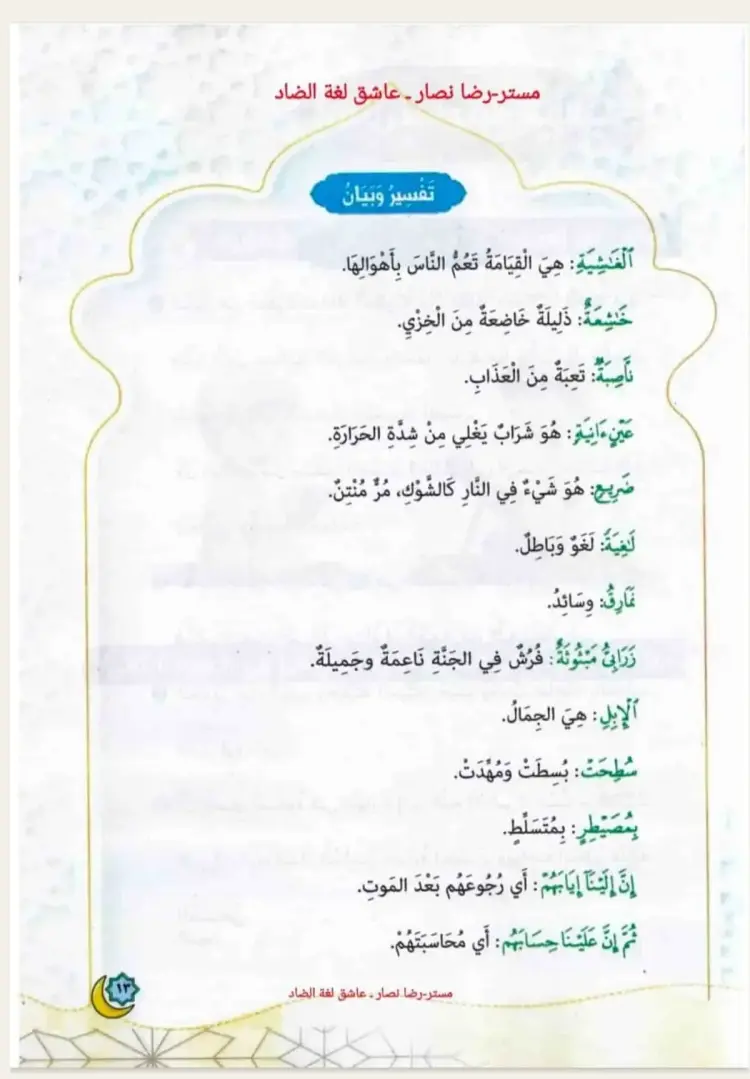 مستر-رضا نصار ـ عاشق لغة الضاد
تَفْسِيرٌ وَبَيَانٌ
ٱلْغَـٰشِيَةِ: هِيَ الْقِيَامَةُ تَعُمُّ النَّاسَ بِأَهْوَالِهَا.
خَـٰشِعَةٌ: ذَلِيلَةٌ خَاضِعَةٌ مِنَ الْخِزْيِ.
نَّاصِبَةٌ: تَعِبَةٌ مِنَ الْعَذَابِ.
عَيْنٍ ءَانِيَةٍ: هُوَ شَرَابٌ يَغْلِي مِنْ شِدَّةِ الحَرَارَةِ.
ضَرِيعٍ: هُوَ شَيْءٌ فِي النَّارِ كَالشَّوْكِ، مُرٌّ مُنْتِنٌ.
لَـٰغِيَةً: لَغَوٌ وَبَاطِلٌ.
نَمَارِقُ: وِسَائِدُ.
زَرَابِىُّ مَبْثُوثَةٌ: فُرُشٌ فِي الجَنَّةِ نَاعِمَةٌ وجَمِيلَةٌ.
ٱلْإِبِلِ: هِيَ الجِمَالُ.
سُطِحَتْ: بُسِطَتْ وَمُهِّدَتْ.
بِمُصَيْطِرٍ: بِمُتَسَلِّطٍ.
إِنَّ إِلَيْنَآ إِيَابَهُمْ: أَي رُجُوعَهُم بَعْدَ المَوتِ.
ثُمَّ إِنَّ عَلَيْنَا حِسَابَهُم: أَي مُحَاسَبَتَهُمْ.
١٣
مستر-رضا نصار ـ عاشق لغة الضاد